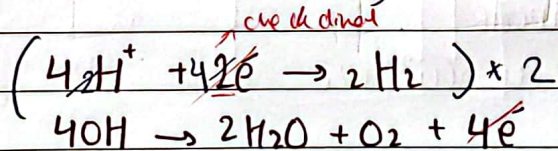 check dinal
(4H⁺ + 4e → 2H2) × 2
4OH → 2H2O + O2 + 4e